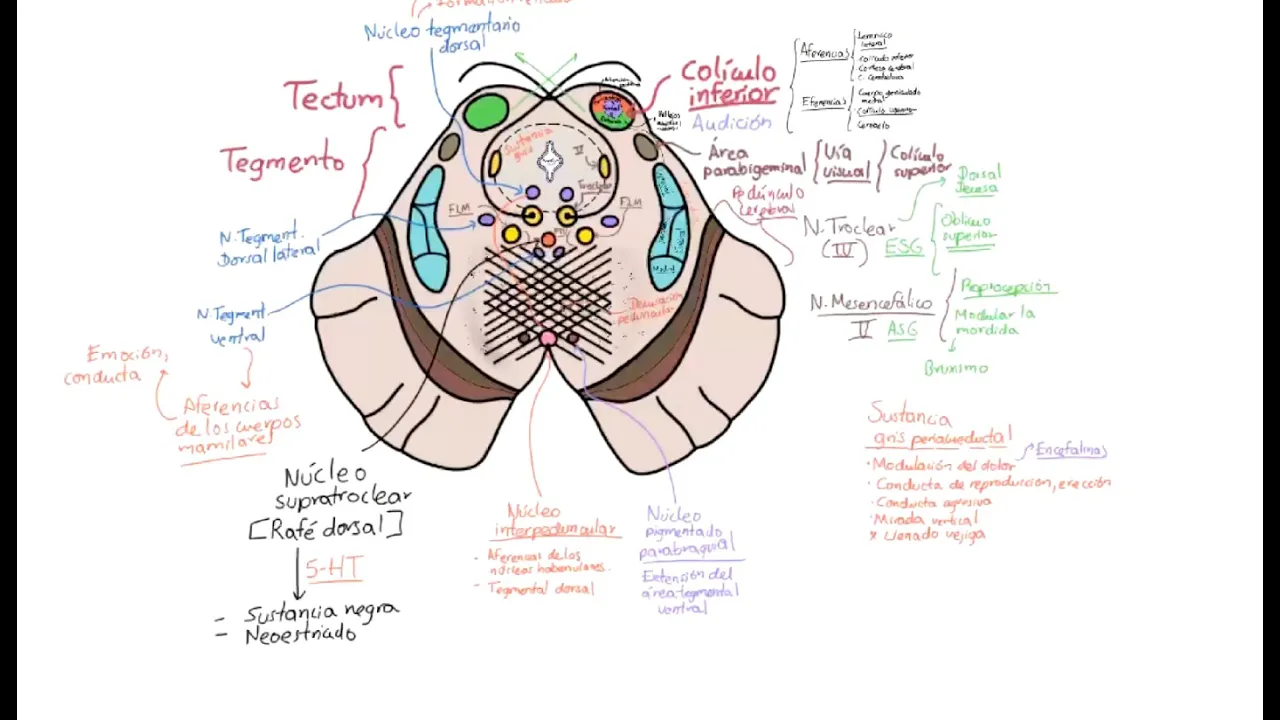 Núcleo tegmentario
dorsal
Tectum
Tegmento
Colículo
inferior
Audición
Aferencias
Lemnisco
lateral
Colículo inferior
Corteza cerebral
C. Contralateral
Eferencias
Cuerpo geniculado
medial
Colículo superior
Cerebelo
Sustancia
gris
V
Troclear
FLM
FLM
Área
parabigeminal
Vía
visual
Colículo
superior
Pedúnculo
cerebral
N. Troclear
(IV)
ESG
Dorsal
Oblicuo
superior
N. Mesencefálico
V
ASG
Propiocepción
Modular la
mordida
Bruxismo
N. Tegment.
Dorsal lateral
N. Tegment
ventral
Emoción,
conducta
Aferencias
de los cuerpos
mamilares
Decusación
peduncular
Núcleo
supratroclear
[Rafé dorsal]
5-HT
- Sustancia negra
- Neoestriado
Núcleo
interpeduncular
- Aferencias de los
núcleos habenulares.
- Tegmental dorsal
Núcleo
pigmentado
parabraquial
Extensión del
área tegmental
ventral
Sustancia
gris periaqueductal
· Modulación del dolor
Encefalinas
· Conducta de reproducción, erección
· Conducta agresiva
· Mirada vertical
* Llenado vejiga